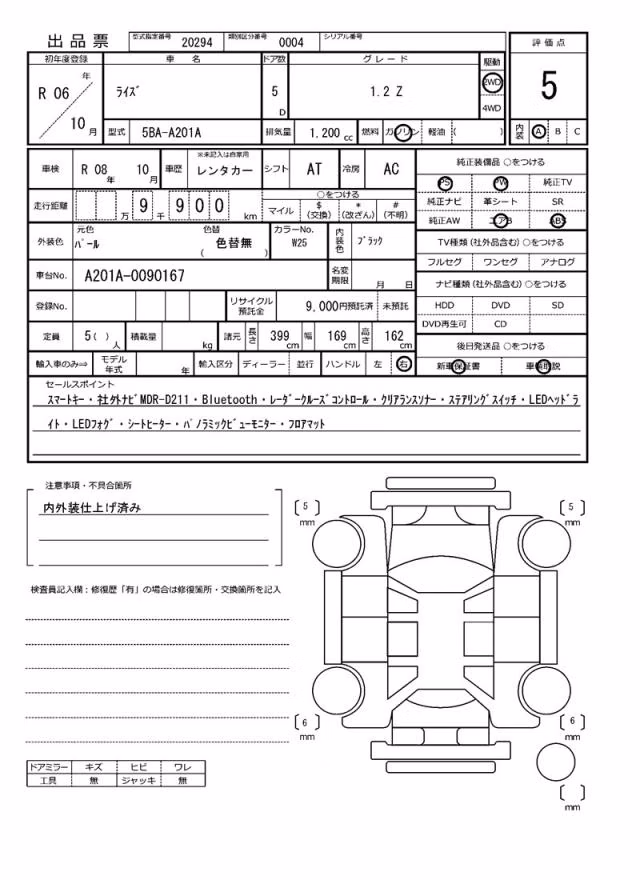 出品票 型式指定番号 20294 類別区分番号 0004 シリアル番号
初年度登録 車名 ドア数 グレード 駆動 評価点
R 06 年 10 月 ライズ 5 D 1.2 Z 2WD 4WD 5
型式 5BA-A201A 排気量 1.200 cc 燃料 ガソリン 軽油 ( ) 内装 A B C
車検 R 08 年 10 月 車歴 ※未記入は自家用 レンタカー シフト AT 冷房 AC 純正装備品 ○をつける
PS PW 純正TV
走行距離 万 9 千 9 0 0 km ○をつける 純正ナビ 革シート SR
マイル $ (交換) * (改ざん) # (不明) 純正AW エアB ABS
外装色 元色 パール 色替 ( 色替無 ) カラーNo. W25 内装色 ブラック TV種類 (社外品含む) ○をつける
フルセグ ワンセグ アナログ
車台No. A201A-0090167 名変期限 月 日 ナビ種類 (社外品含む) ○をつける
登録No. リサイクル預託金 9,000円預託済 未預託 HDD DVD SD
DVD再生可 CD
定員 5( ) 人 積載量 kg 諸元 長さ 399 cm 幅 169 cm 高さ 162 cm 後日発送品 ○をつける
輸入車のみ⇒ モデル年式 年 輸入区分 ディーラー 並行 ハンドル 左 右 新車保証書 車輌取説
セールスポイント
スマートキー・社外ナビMDR-D211・Bluetooth・レーダークルーズコントロール・クリアランスソナー・ステアリングスイッチ・LEDヘッドラ
イト・LEDフォグ・シートヒーター・パノラミックビューモニター・フロアマット
注意事項・不具合箇所
内外装仕上げ済み
[5] mm [5] mm
検査員記入欄：修復歴「有」の場合は修復箇所・交換箇所を記入
[6] mm [6] mm
ドアミラー キズ ヒビ ワレ
工具 無 ジャッキ 無
[ ] mm